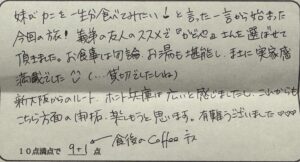 妹が「カニを一生分食べてみたい!」と言った一言から始まった
今回の旅! 義事の友人のススメで『かどや』さんを選ばせて
頂きました。お食事は勿論、お湯も堪能し、まさに実家席
満載でした (… 貸切でしたしね)
新大阪からのルート、ホント兵庫は広いと感じましたし、これからも
こちら方面の開拓、楽しもうと思います。有難うございました
10点満点で 9+1 点
食後のCoffee